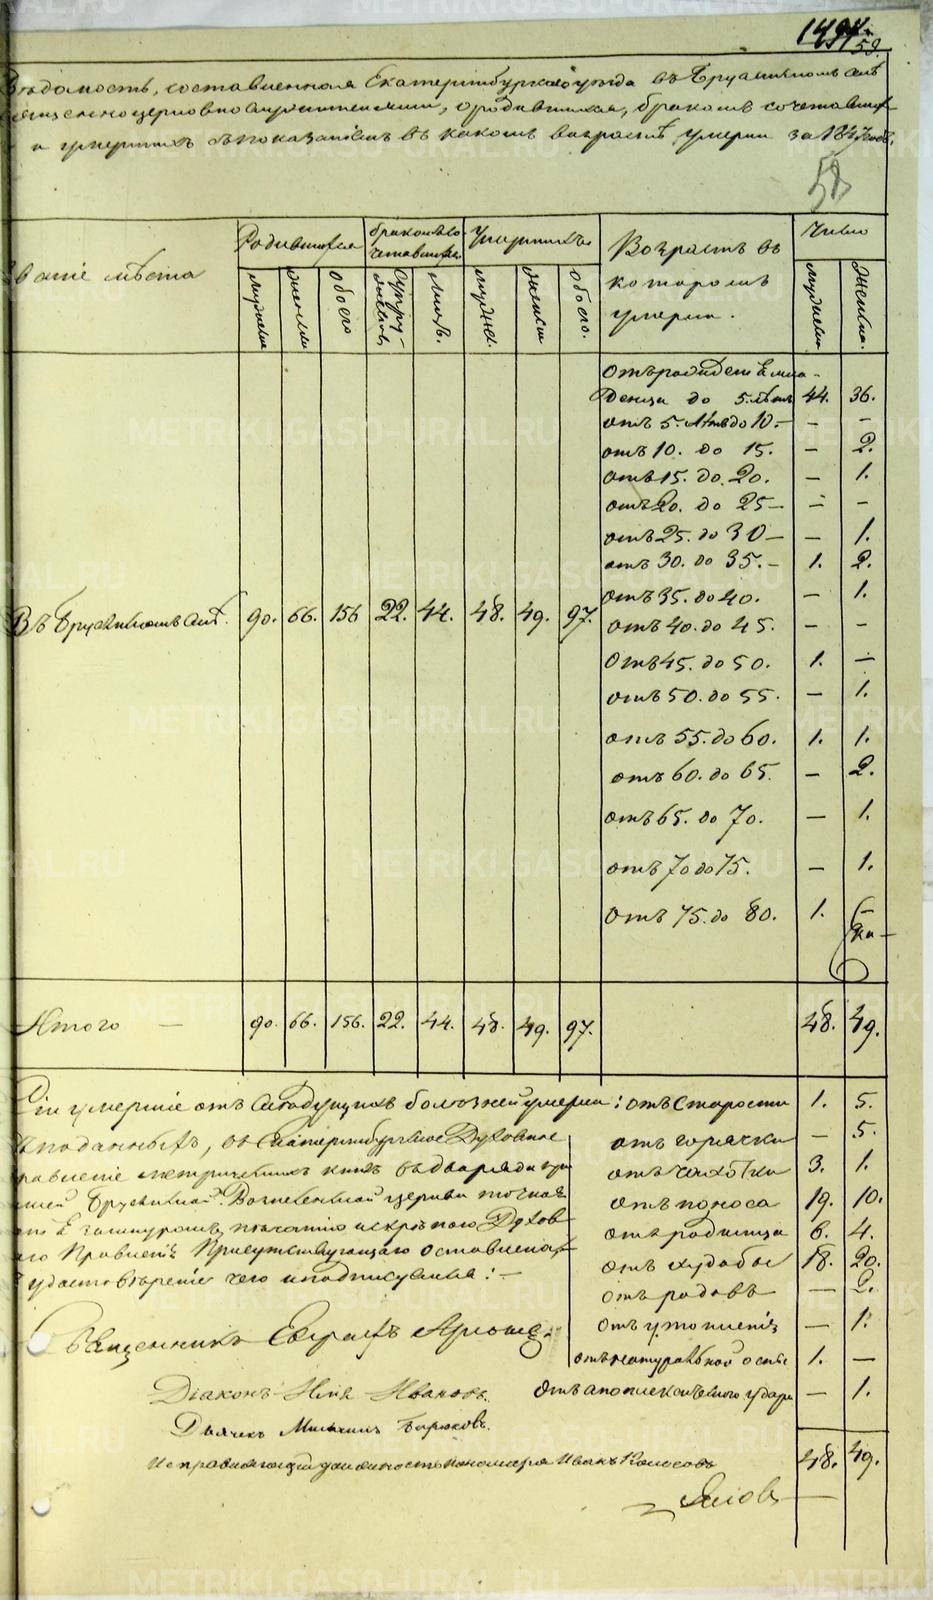 1494
59.
Ведомость, составленная Екатеринбургскаго уѣзда въ Брусянскомъ селѣ
священноцерковнослужителями, о родившихся, бракомъ сочетавшихся
и умершихъ съ показаніемъ въ какомъ возрастѣ умерли за 1847 годъ.
58
Званіе мѣста
Родившихся
бракомъ сочетавшихся
Умершихъ
Возрастъ въ которомъ умерли.
Число
мужеска
женска
обоего
Супружествъ
лицъ.
мужес.
женска
обоего.
мужеска
женска.
отъ рожденія мла-
денца до 5. лѣтъ 44. 36.
отъ 5. лѣтъ до 10.— — —
отъ 10. до 15. — 2.
отъ 15. до 20. — 1.
отъ 20. до 25— — —
отъ 25. до 30— — 1.
отъ 30. до 35.— 1. 2.
отъ 35. до 40. — 1.
Въ Брусянскомъ селѣ. 90. 66. 156 22. 44. 48. 49. 97.
отъ 40. до 45. — —
отъ 45. до 50. 1. —
отъ 50. до 55. — 1.
отъ 55. до 60. 1. 1.
отъ 60. до 65. — 2.
отъ 65. до 70. — 1.
отъ 70 до 75. — 1.
отъ 75. до 80. 1. —
Итого — 90. 66. 156. 22. 44. 48. 49. 97. 48. 49.
Сіи умершіе отъ слѣдующихъ болѣзней умерли: отъ Старости 1. 5.
отъ горячки — 5.
отъ чахотки 3. 1.
отъ поноса 19. 10.
отъ родимца 6. 4.
отъ худобы 18. 20.
отъ родовъ — 2.
отъ утопленія — 1.
отъ натуральной оспы 1. —
отъ апоплексическаго удара — 1.
48. 49.
поданныхъ, въ Екатеринбургское Духовное
Правленіе метрическихъ книгъ
церкви точная
печатію
Правленія Присутствующаго
удостовѣреніе чего и подписуемся: —
Священникъ
Діаконъ Илія Ивановъ.
Дьячекъ Бирюковъ.
Исправляющій должность пономаря Иванъ Колосовъ
METRIKI.GASO-URAL.RU